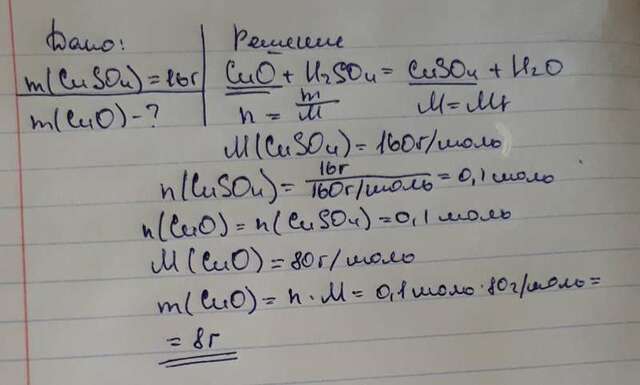 Дано:
m(CuSO4) = 16г
m(CuO) - ?
Решение
CuO + H2SO4 = CuSO4 + H2O
n = m/M M = Mr
M(CuSO4) = 160г/моль
n(CuSO4) = 16г/160г/моль = 0,1 моль
n(CuO) = n(CuSO4) = 0,1 моль
M(CuO) = 80г/моль
m(CuO) = n · M = 0,1 моль · 80г/моль =
= 8г